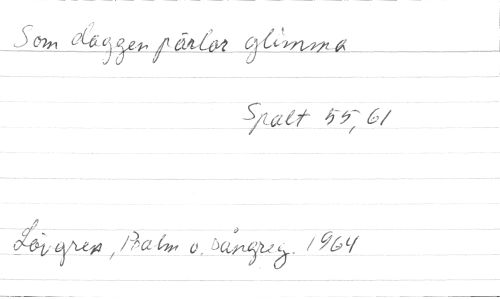 Som daggen pärlor glimma
Spalt 55, 61
Lövgren, Psalm o. sångreg. 1964